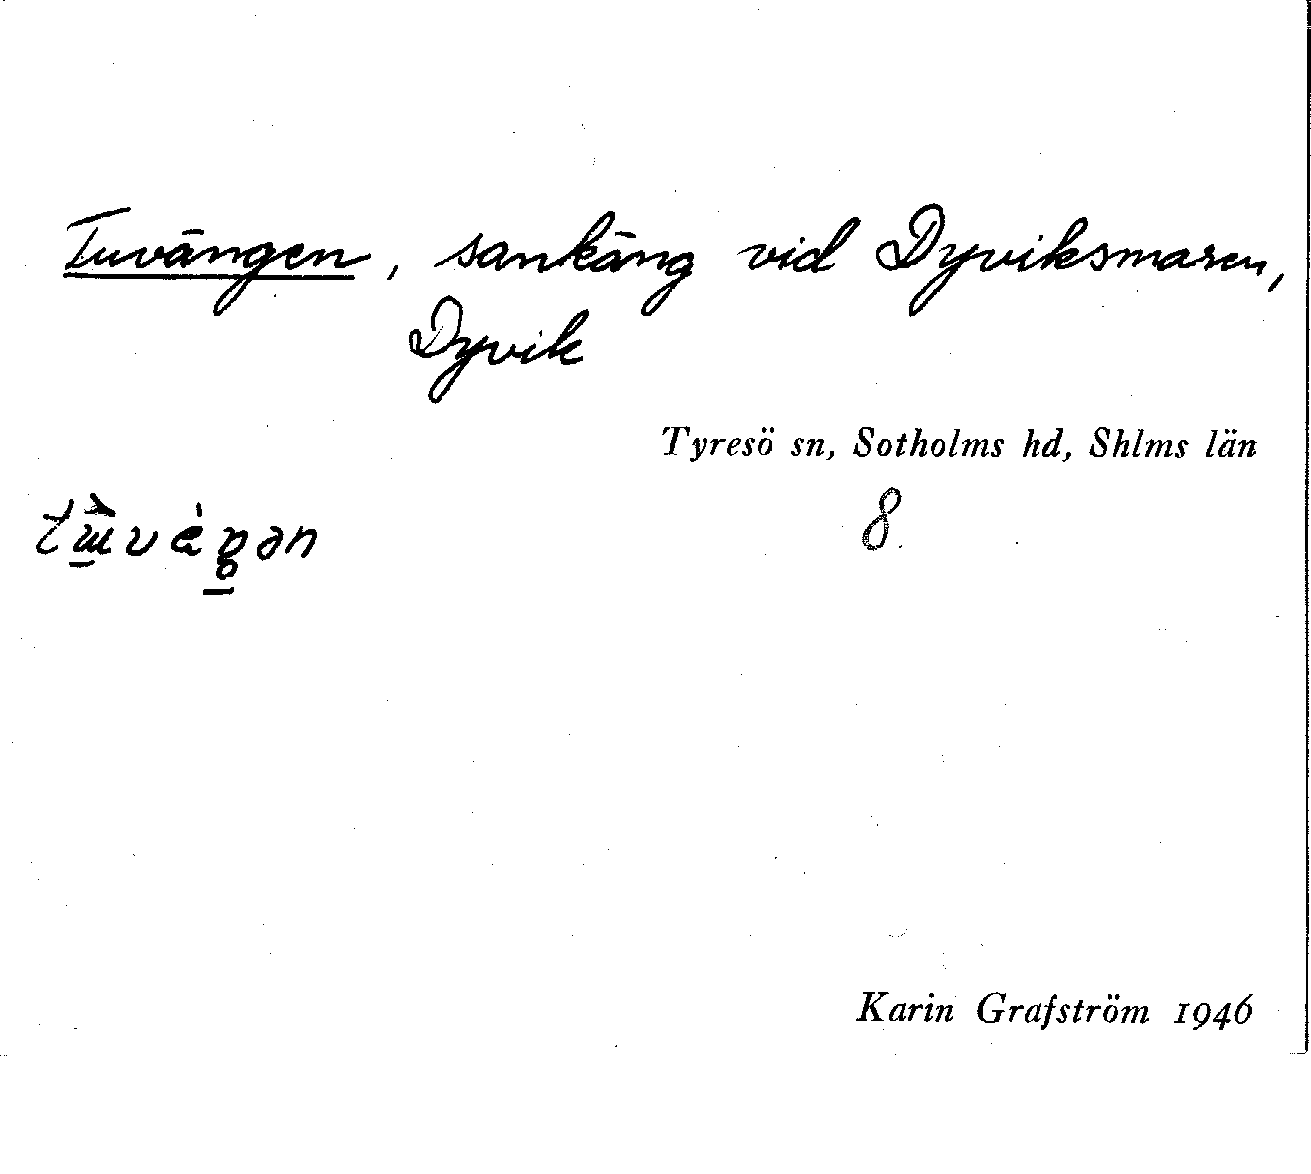 Tuvängen, sankäng vid Dyviksmaren,
Dyvik
Tyresö sn, Sotholms hd, Shlms län
8.
Karin Grafström 1946